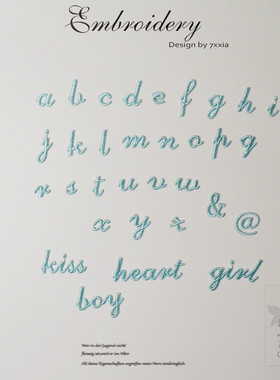 Embroidery
Design by 7xxia
a b c d e f g h i
j k l m n o p q
r s t u v w
x y z & @
kiss heart girl
boy
Wer in der Jugend nicht
All deine Eigenschaften